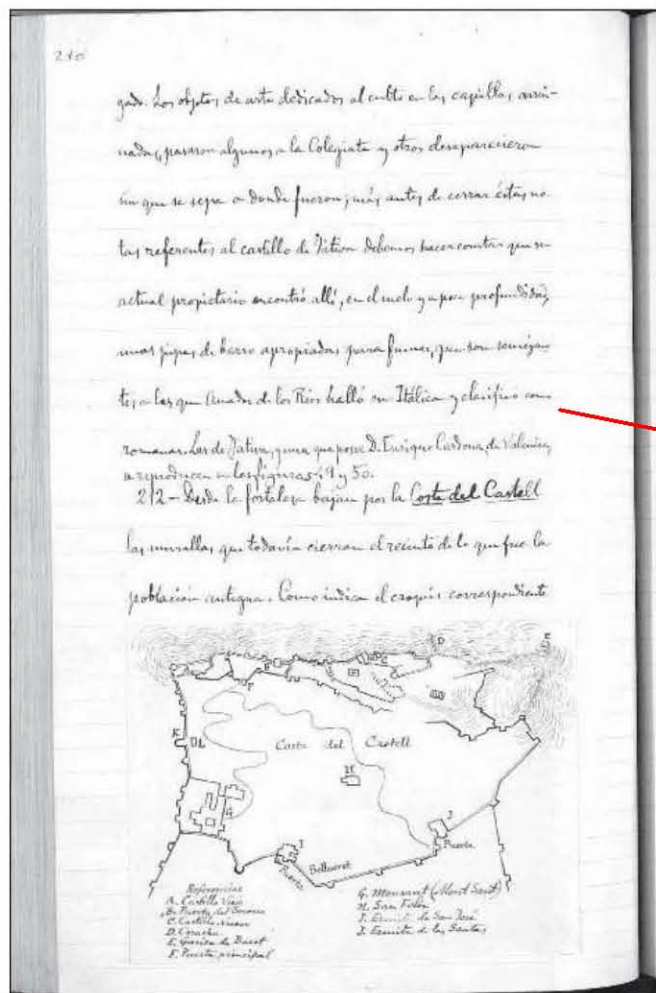 210
gado. Los objetos de arte dedicados al culto en las capillas arrui-
nadas, pasaron algunos a la Colegiata y otros desaparecieron
sin que se sepa a donde fueron; más antes de cerrar éstas no-
tas referentes al castillo de Játiva debemos hacer constar que su
actual propietario encontró allí, en el suelo y a poca profundidad,
unas pipas de barro apropiadas para fumar, que son semejan-
tes a las que Amador de los Ríos halló en Itálica y clasificó como
romanas. Las de Játiva, y una que posee D. Enrique Cardona, de Valencia,
se reproducen en las figuras 49 y 50.
212 - Desde la fortaleza bajan por la Costa del Castell
las murallas que todavía cierran el recinto de lo que fue la
población antigua. Como indica el croquis correspondiente
D
E
F
K
L
Costa del Castell
H
G
I
J
Puerta
Bellveret
Puerta
Referencias
A. Castillo Viejo
B. Puerta del Socorro
C. Castillo Nuevo
D. Coracha
E. Garita de Baset
F. Puerta principal
G. Monsant (Mont Sant)
H. San Feliu
I. Ermita de San José
J. Ermita de las Santas